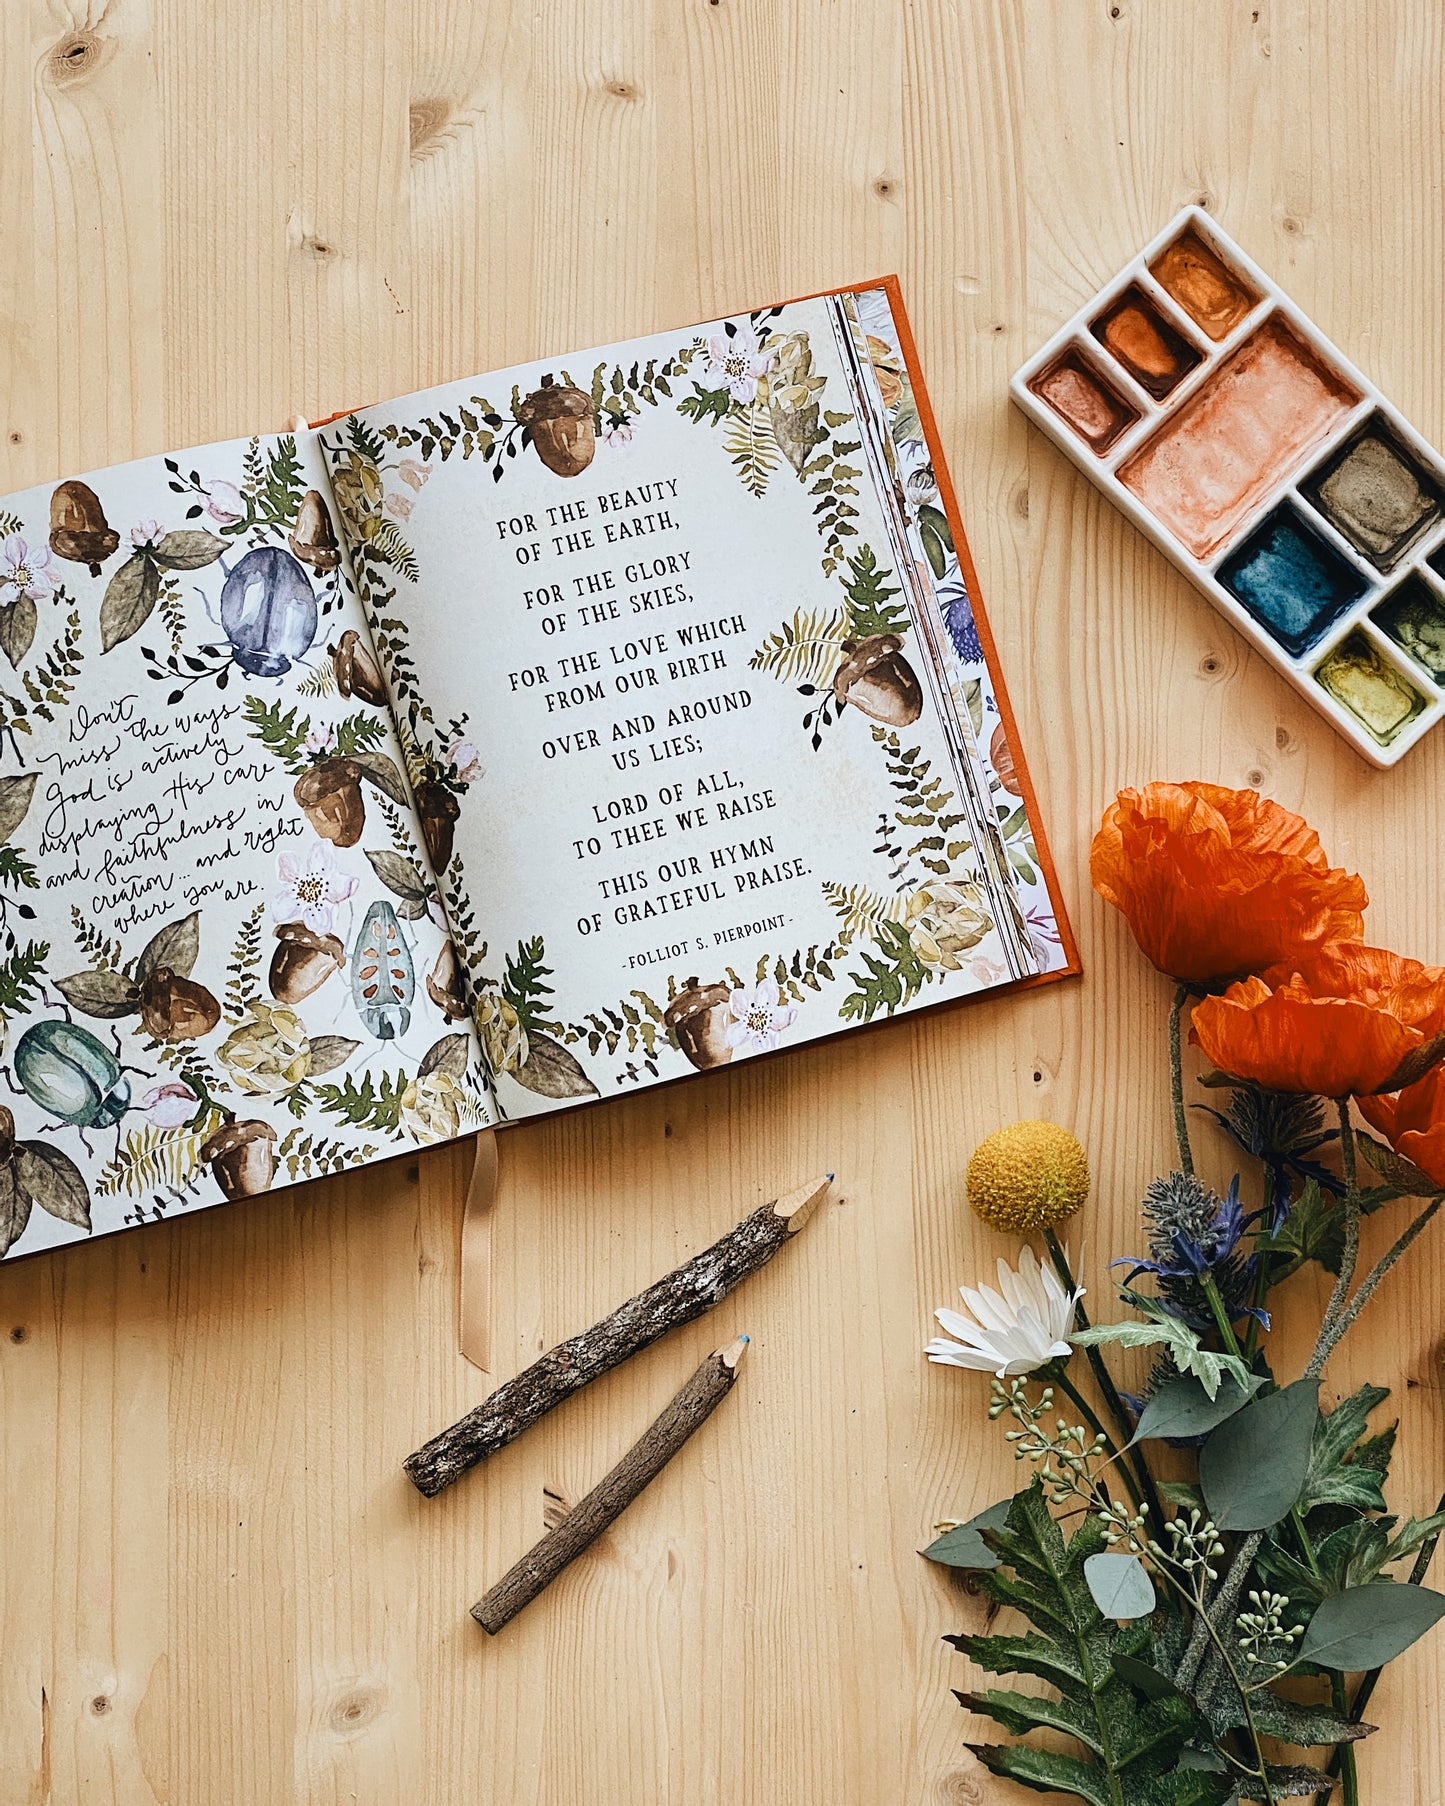 Don't
miss the ways
God is actively
displaying His care
and faithfulness in
creation... and right
where you are.
FOR THE BEAUTY
OF THE EARTH,
FOR THE GLORY
OF THE SKIES,
FOR THE LOVE WHICH
FROM OUR BIRTH
OVER AND AROUND
US LIES;
LORD OF ALL,
TO THEE WE RAISE
THIS OUR HYMN
OF GRATEFUL PRAISE.
-FOLLIOT S. PIERPOINT-